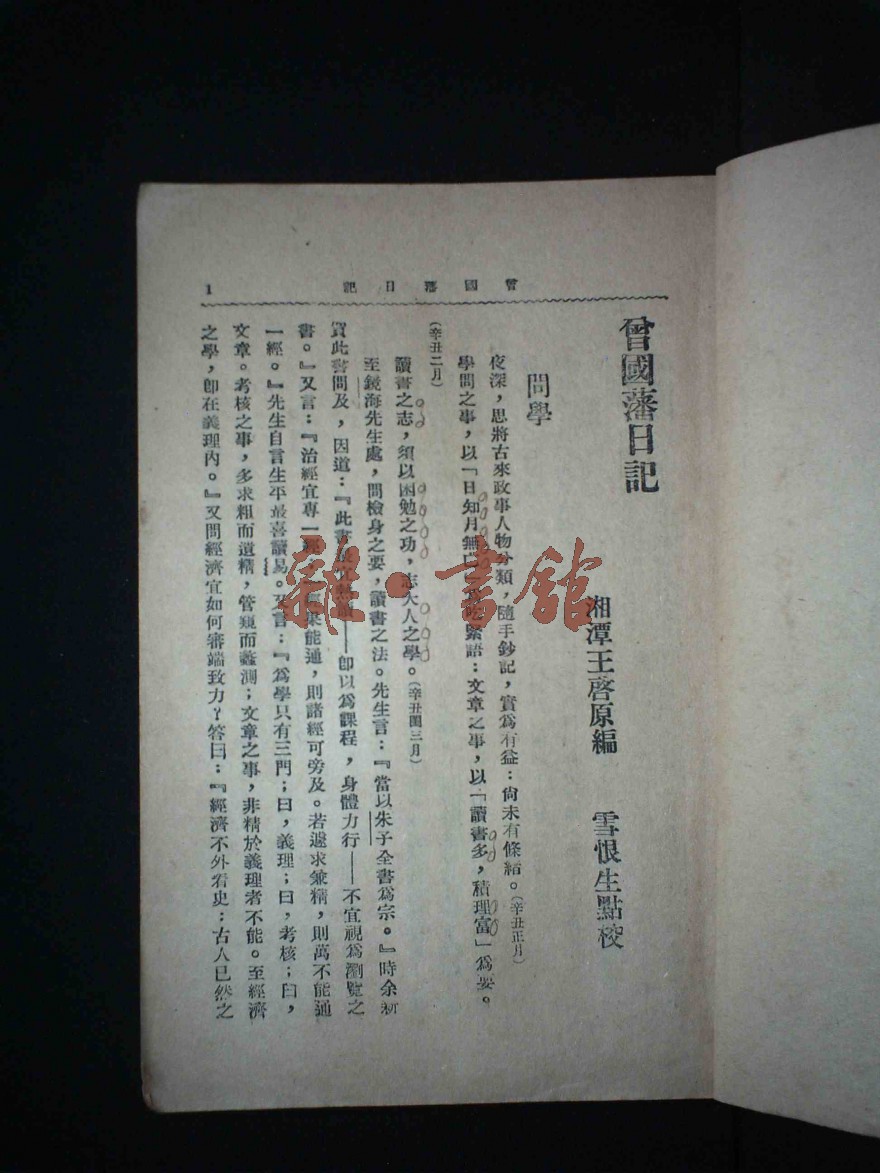 曾國藩日記
1
曾國藩日記
湘潭王啓原編　雪恨生點校
問學
夜深，思將古來政事人物分類，隨手鈔記，實爲有益；尙未有條緒。(辛丑正月)
學問之事，以「日知月無亡」爲吃緊語；文章之事，以「讀書多，積理富」爲要。
(辛丑二月)
讀書之志，須以困勉之功，志大人之學。(辛丑閏三月)
至鏡海先生處，問檢身之要，讀書之法。先生言：『當以朱子全書爲宗。』時余新
買此書問及，因道：『此書最宜熟讀——卽以爲課程，身體力行——不宜視爲瀏覽之
書。』又言：『治經宜專一經，一經果能通，則諸經可旁及。若遽求兼精，則萬不能通
一經。』先生自言生平最喜讀易。又言：『爲學只有三門；曰，義理；曰，考核；曰，
文章。考核之事，多求粗而遺精，管窺而蠡測；文章之事，非精於義理者不能。至經濟
之學，卽在義理內。』又問經濟宜如何審端致力？答曰：『經濟不外看史：古人已然之
雜·書館